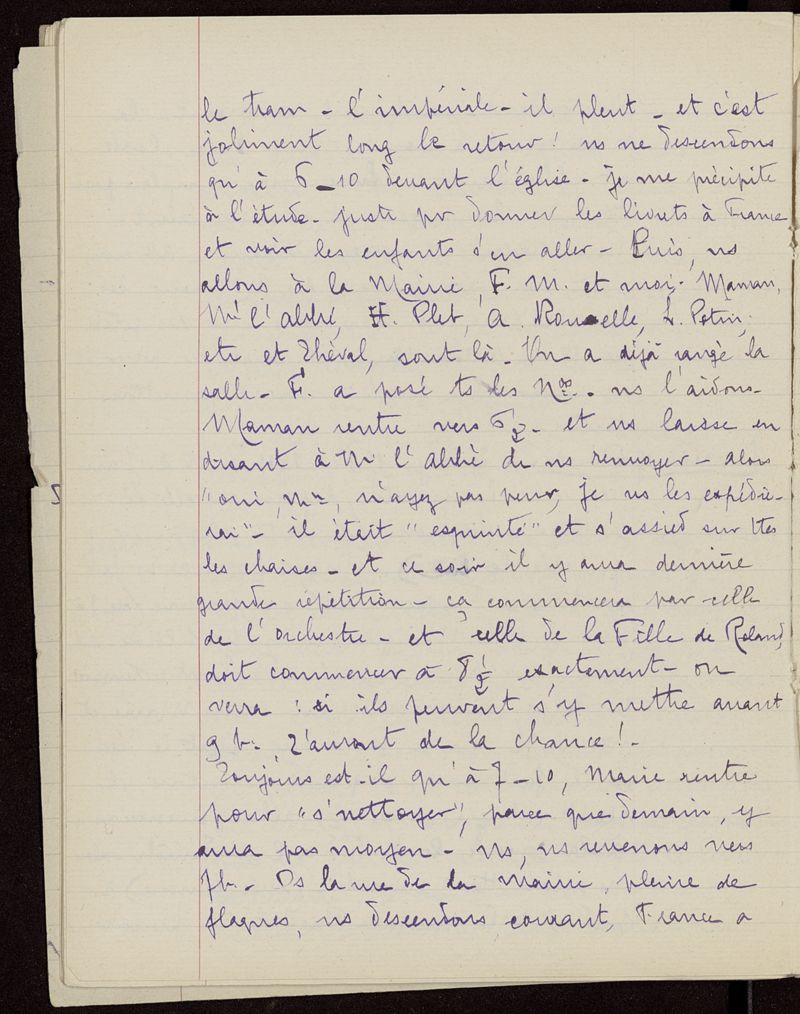 le tram - l'impériale - il pleut - et c'est
joliment long le retour! ns ne descendons
qu'à 6-10 devant l'église - je me précipite
à l'étude - juste pr donner les livrets à France
et voir les enfants s'en aller - Puis, ns
allons à la Mairie, F. M. et moi - Maman,
Mr l'abbé, H. Plet, A. Rousselle, L. Potin,
etc et Théval, sont là - On a déjà rangé la
salle - F. a posé ts les Nos - ns l'aidons -
Maman rentre vers 6½ - et ns laisse en
disant à Mr l'abbé de ns renvoyer - alors
"oui, Me, n'ayez pas peur, je vs les expédie-
rai" - il était "esquinté" et s'assied sur ttes
les chaises - et ce soir il y aura dernière
grande répétition - ça commencera par celle
de l'orchestre - et celle de la Fille de Roland
doit commencer à 8½ exactement - on
verra : si ils peuvent s'y mettre avant
9 h. z'auront de la chance! -
Toujours est-il qu'à 7-10, Marie rentre
pour "s'nettoyer", parce que demain, y
aura pas moyen - ns, ns revenons vers
7h - Ds la rue de la mairie, pleine de
flaques, ns descendons courant, France a